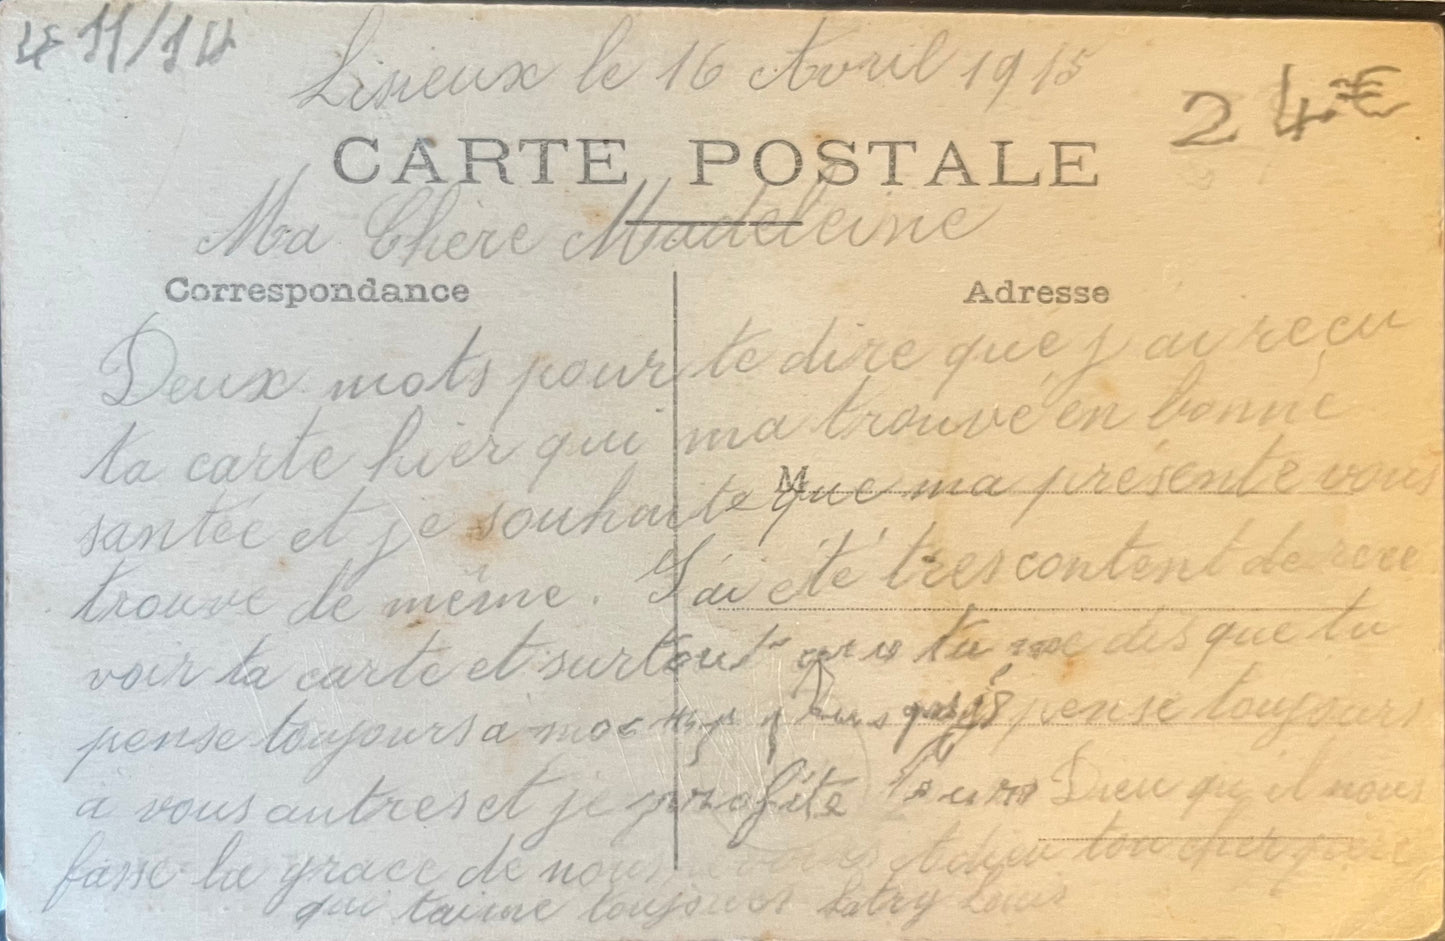 411/14
Lisieux le 16 Avril 1915
2 4.€
CARTE POSTALE
Ma Chère Madeleine
Correspondance
Adresse
Deux mots pour te dire que j ai reçu
ta carte hier qui ma trouvé en bonne
M
santée et je souhaite que ma présente vous
trouve de même. J'ai été tres content de rece
voir ta carte et surtout tu me dis que tu
pense toujours a moi pense toujours
a vous autres et je Dieu qu il nous
fasse la grace de nous Adieu ton cher père
qui t'aime toujours Louis